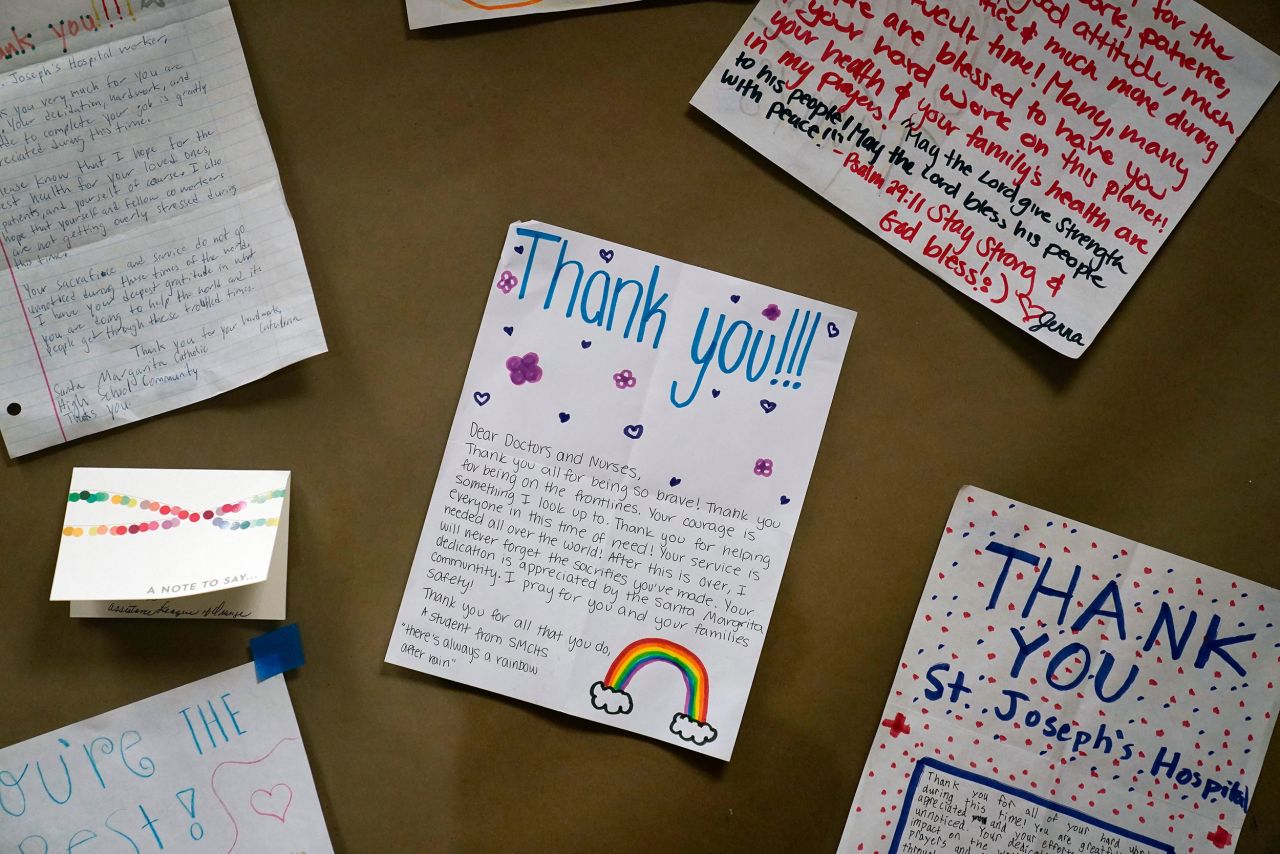 Thank you!!!
Dear Doctors and Nurses,
Thank you all for being so brave! Thank you
for being on the frontlines. Your courage is
something I look up to. Thank you for helping
everyone in this time of need! Your service is
needed all over the world! After this is over, I
will never forget the sacrifies you've made. Your
dedication is appreciated by the Santa Margrita
community. I pray for you and your families
safety!
Thank you for all that you do,
A student from SMCHS
"there's always a rainbow
after rain"
you!!!!
Joseph's Hospital worker,
you very much for you are
Your decidation, hardwork, and
to complete your job is greatly
during this time.
know that I hope for the
health for your loved ones,
patients, and yourself of course. I also
hope that yourself and fellow co workers
are not getting overly stressed during
this time.
Your sacrafice and service do not go
unnoticed during these times of the world,
I have your deepest gratitude in what
you are doing to help the world and its
people get through these troubled times.
Thank you for your hardwork
Santa Margarita Catholic
High School Community
Thanks you
for the
work, patience,
good attitude, much
& much more during
time! Many, many
are blessed to have you
your hard work on this planet!
your health & your family's health are
in my prayers! "May the Lord give Strength
to his people! May the Lord bless his people
with peace!!"
-Psalm 29:11 Stay Strong &
God bless! :)
Jenna
A NOTE TO SAY...
Assistance League of Orange
THE
Best!
THANK
YOU
St. Joseph's Hospital
Thank you for all of your hard
during this time! You are
appreciated and your
unnoticed. Your
impact on the
prayers and
through